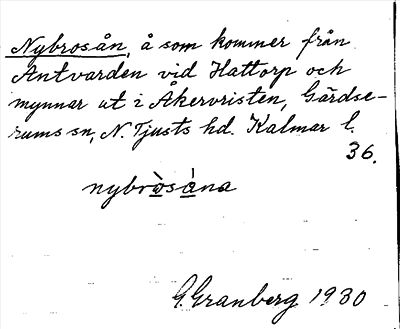 Nybrosån, å som kommer från
Antvarden vid Hattorp och
mynnar ut i Åkervristen, Gärdse-
rums sn, N. Tjusts hd. Kalmar l.
36.
nybrò̤sá̤na
G. Granberg 1930